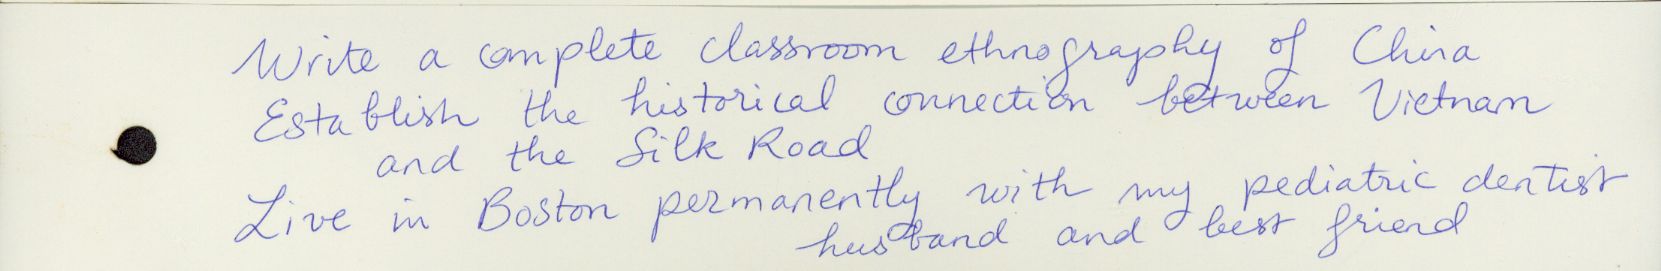 Write a complete classroom ethnography of China
Establish the historical connection between Vietnam
and the Silk Road
Live in Boston permanently with my pediatric dentist
husband and best friend